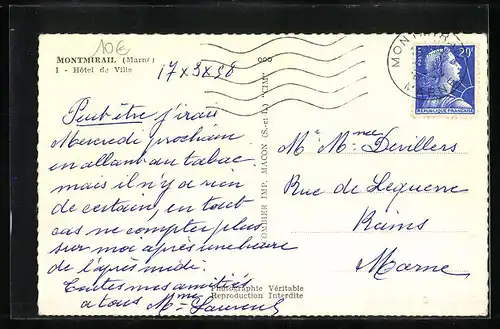 10€
MONTMIRAIL (Marne)
1 - Hôtel de Ville
17 x 3 x 58
MONTMIRAIL
20F
REPUBLIQUE FRANÇAISE
Peut être j'irais
Mercredi prochain
en allant au tabac
mais il n'y a rien
de certain, en tout
cas ne compter plus
sur moi après une heure
de l'après midi.
Toutes mes amitiés
a tous Mme Laurent
COMBIER IMP. MACON (S.-et-L.) "CIM"
M. Mme Devillers
Rue de Lequeme
Reims
Marne
Photographie Véritable
Reproduction Interdite